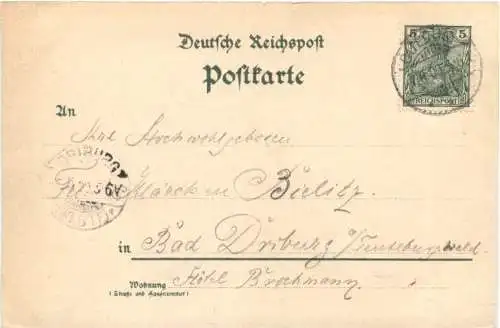 Deutsche Reichspost
Postkarte
5 5
REICHSPOST
An
Ihre Hochwohlgeboren
DRIBURG
Bielitz
in Bad Driburg a/Teutoburgwald
Wohnung Hôtel Brockmann
(Straße und Hausnummer)